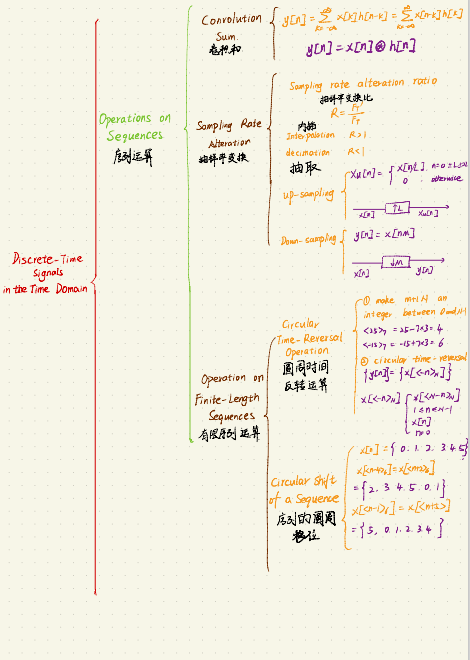 Discrete-Time
Signals
in the Time Domain
Operations on
Sequences
序列运算
Convolution
Sum.
卷积和
y[n] = ∑ x[k]h[n-k] = ∑ x[n-k]h[k]
y[n] = x[n]⊛h[n]
Sampling Rate
Alteration
抽样率变换
Sampling rate alteration ratio
抽样率变换比
R = F_T'/F_T
内插
Interpolation R>1
decimation R<1
抽取
up-sampling
Xu[n] = { x[n/L]. n=0 ±L
0 otherwise
x[n] ↑L Xu[n]
Down-sampling
y[n] = x[nM]
x[n] ↓M y[n]
Operation on
Finite-Length
Sequences
有限序列运算
Circular
Time-Reversal
Operation
圆周时间
反转运算
① make m+lN an
integer between 0 and N-1
<25>7 = 25-7×3 = 4
<-15>7 = -15+7×3 = 6
② circular time-reversal
{y[n]} = {x[<-n>N]}
x[<-n>N] { x[<N-n>N]
1≤n≤N-1
x[n]
n=0
Circular Shift
of a Sequence
序列的圆周
移位
x[n] = { 0. 1. 2. 3 4 5}
= { 2. 3 4. 5. 0. 1 }
= { 5, 0. 1. 2. 3. 4 }